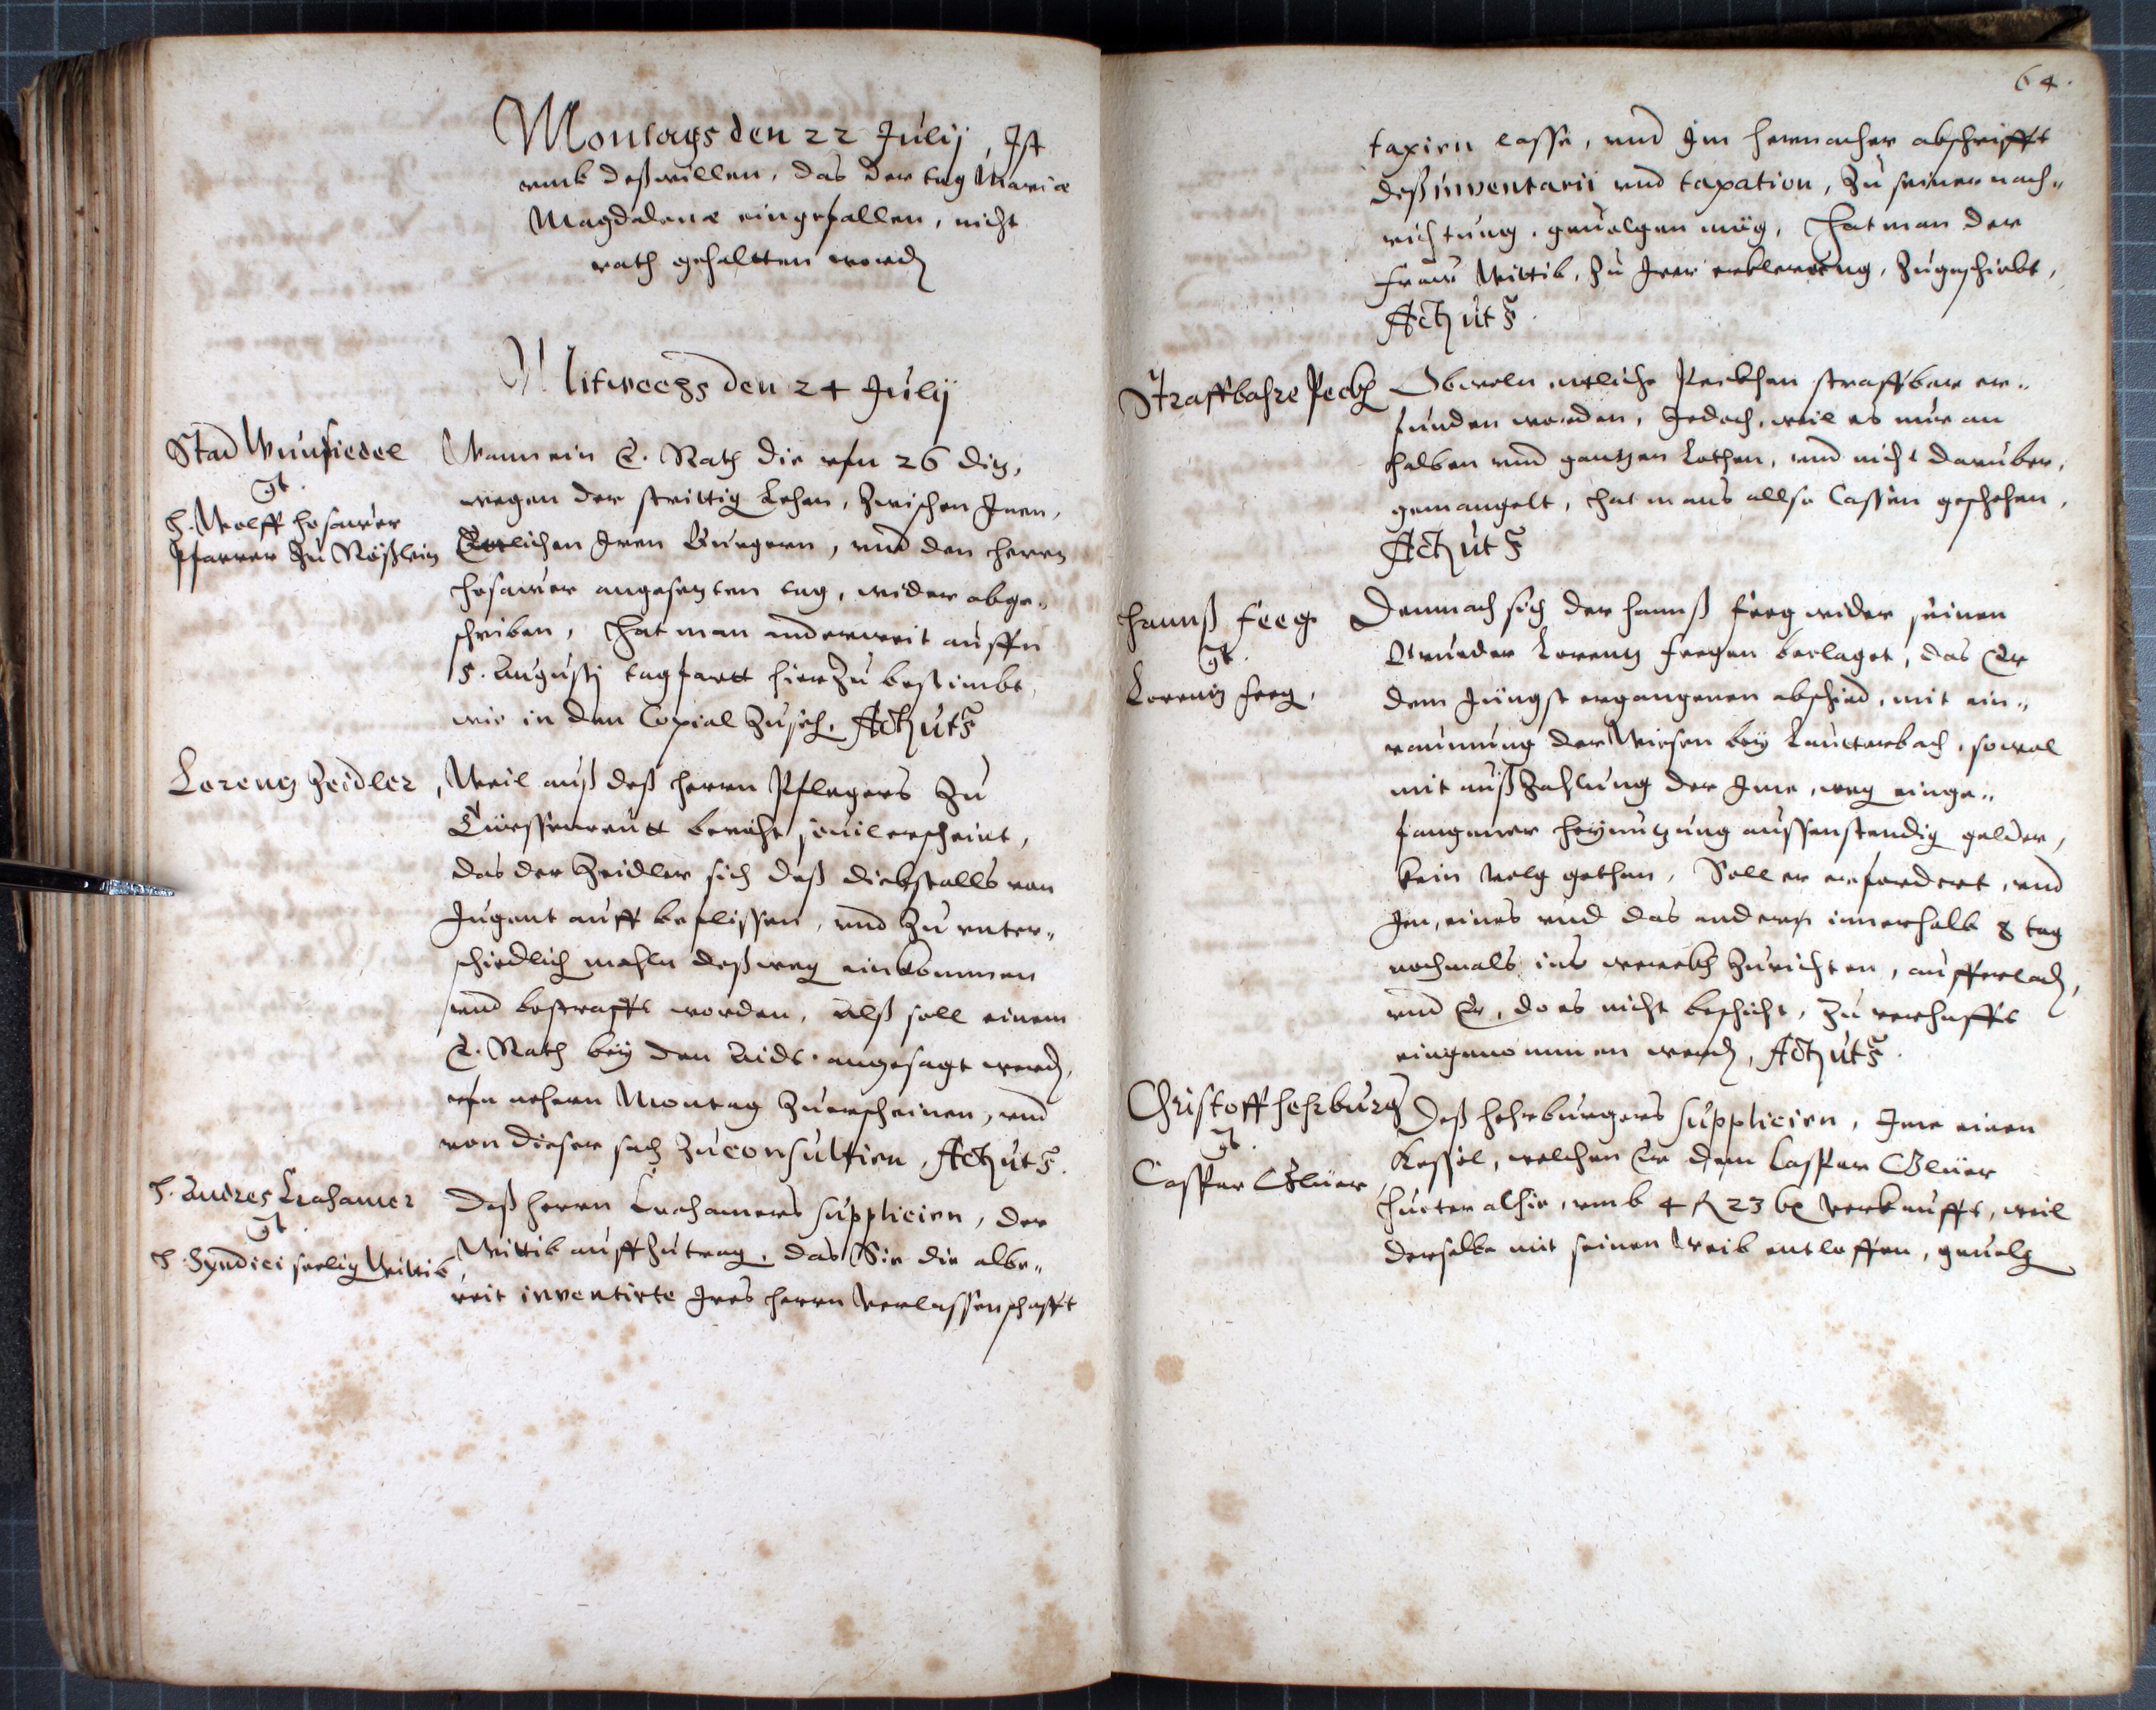 Montags den 22 Julij, Ist
vmb deßwillen, das der tag Mariæ
Magdalenæ eingefallen, nicht
rath gehaltten word
Mitwochs den 24 Julij
Stad Wunsiedel
gt.
H. Wolff Hosawer
Pfarrer zu Rößlein
Wann ein E. Rath die vfn 26 diß,
wegen der strittig Lehen, zwischen Inen,
Etlichen Iren Burgern, und den herrn
Hosawer angesezten tag, wider abge-
schriben, Hat man anderweit auffn
5. Augusti tagfartt hierzu bestimbt,
wie in den Copial zusehen. Act ut s
Lorentz Zeidler
Weil auß deß herrn Pflegers zu
bericht souil erscheint,
das der Zeidler sich deß diebstalls von
Jugent auff beflissen, vnd zu vnter-
schiedlich mahln deßweg einkommen
vnd bestrafft worden, Alß soll einem
E. Rath bey den Aidt angesagt werd,
vfn nehern Montag zuerscheinen, vnd
von dieser sach zu consultirn, Act ut s.
H. Andres
gt.
H. Syndici seelig Wittib
Deß herrn suppliciren, der
Wittib auffzutrag, das Sie die albe-
reit inventirte Ires herrn Verlassenschafft
64.
taxirn lasse, vnd Im hernacher abschrifft
deß inventarii vnd taxation, zu seiner nach-
richtung, geuolgen müg, Hat man der
Fraw Wittib, zu Irer erklerung, zugeschickt,
Act ut s.
Straffbahre Peckh
Obwoln etliche Peckhen straffbar er-
funden worden, Jedoch, weil es nur an
halben vnd gantzen Lothen, vnd nicht darüber,
gemangelt, hat mans allso lassen geschehen,
Act ut s
Hannß Feeg
gt.
Lorentz Feeg.
Demnach sich der Hannß Feeg wider seinen
Bruder Lorentz Feegen beclaget, das Er
dem Jüngst ergangenen abschied, mit ein-
raumung der Wiesen bey Lautterbach, sowol
mit außzahlung der Ime, weg einge-
fangener heynutzung aussenstendig gelder,
kein volg gethan, Soll er erfordert, vnd
Im, eines vnd das andere innerhalb 8 tag
nochmals ins werckh zurichten, aufferlad,
vnd Er, do es nicht beschicht, zu verhafft
eingenommen werd, Act ut s.
Christoff Hehrburg
gt.
Caspar Glüer
Deß Hehrburgers suppliciren, Ime einen
Kessel, welchen Er dem Caspar Glüer
Hueter alhie, vmb 4 fl 23 kr verkaufft, weil
derselbe mit seinen Weib entloffen, geuolg